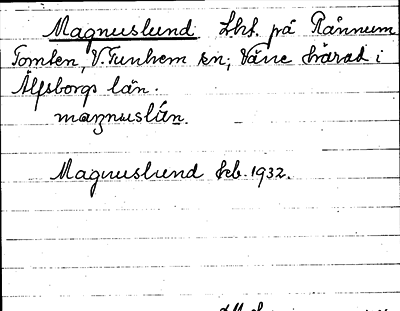 Magnuslund Lht. på Rånnum
Tomten, V. Tunhem sn; Väne härad i
Älfsborgs län.
magnuslún.
Magnuslund Jeb. 1932.